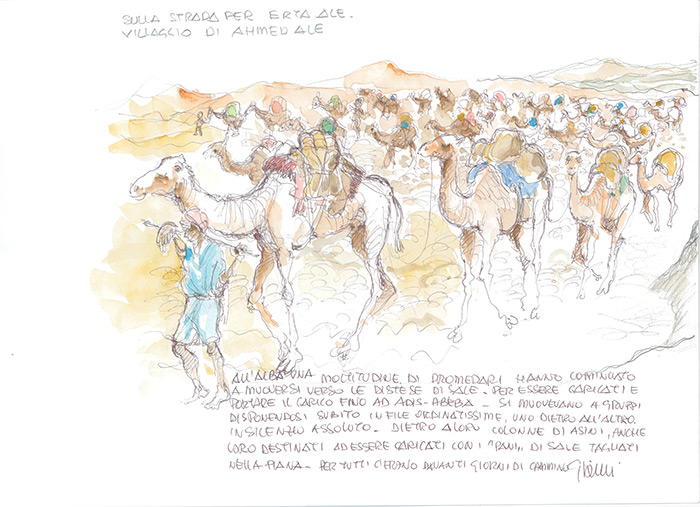 SULLA STRADA PER ERTA ALE.
VILLAGGIO DI AHMED ALE
ALL'ALBA UNA MOLTITUDINE DI DROMEDARI HANNO COMINCIATO
A MUOVERSI VERSO LE DISTESE DI SALE. PER ESSERE CARICATI E
PORTARE IL CARICO FINO AD ADIS-ABEBA - SI MUOVEVANO A GRUPPI
DISPONENDOSI SUBITO IN FILE ORDINATISSIME, UNO DIETRO ALL'ALTRO.
IN SILENZIO ASSOLUTO. DIETRO A LORO COLONNE DI ASINI, ANCHE
LORO DESTINATI AD ESSERE CARICATI CON I "PANI" DI SALE TAGLIATI
NELLA PIANA. PER TUTTI C'ERANO DAVANTI GIORNI DI CAMMINO